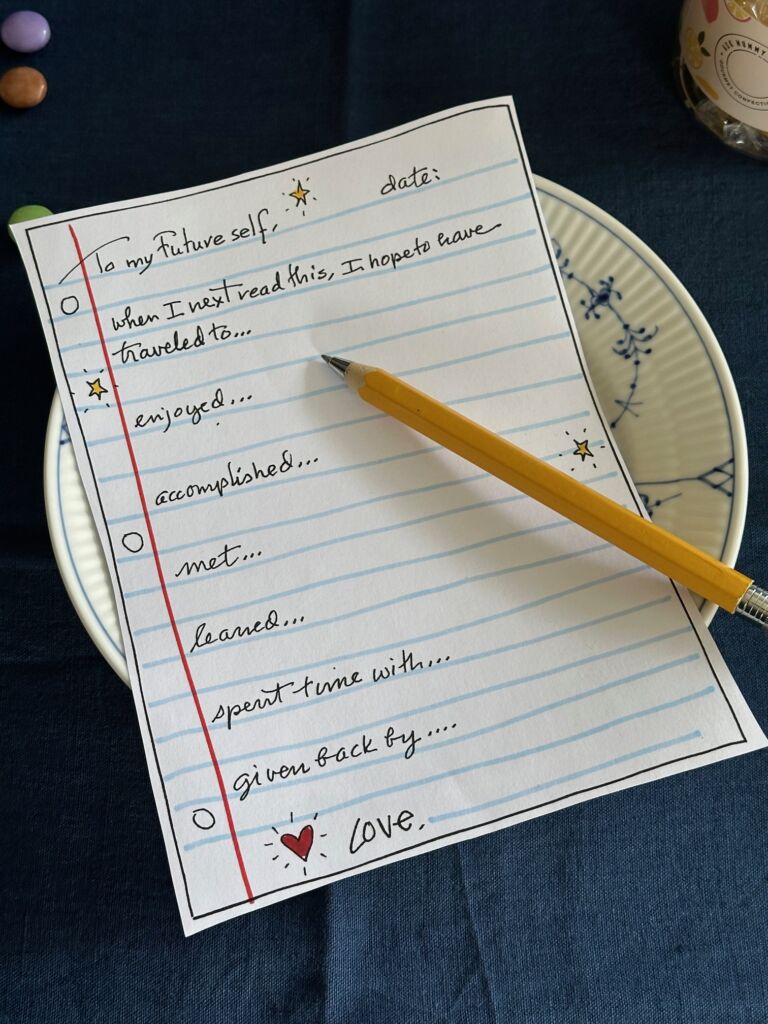 To my Future self,
date:
when I next read this, I hope to have
traveled to...
enjoyed...
accomplished...
met...
learned...
spent time with...
given back by....
Love,